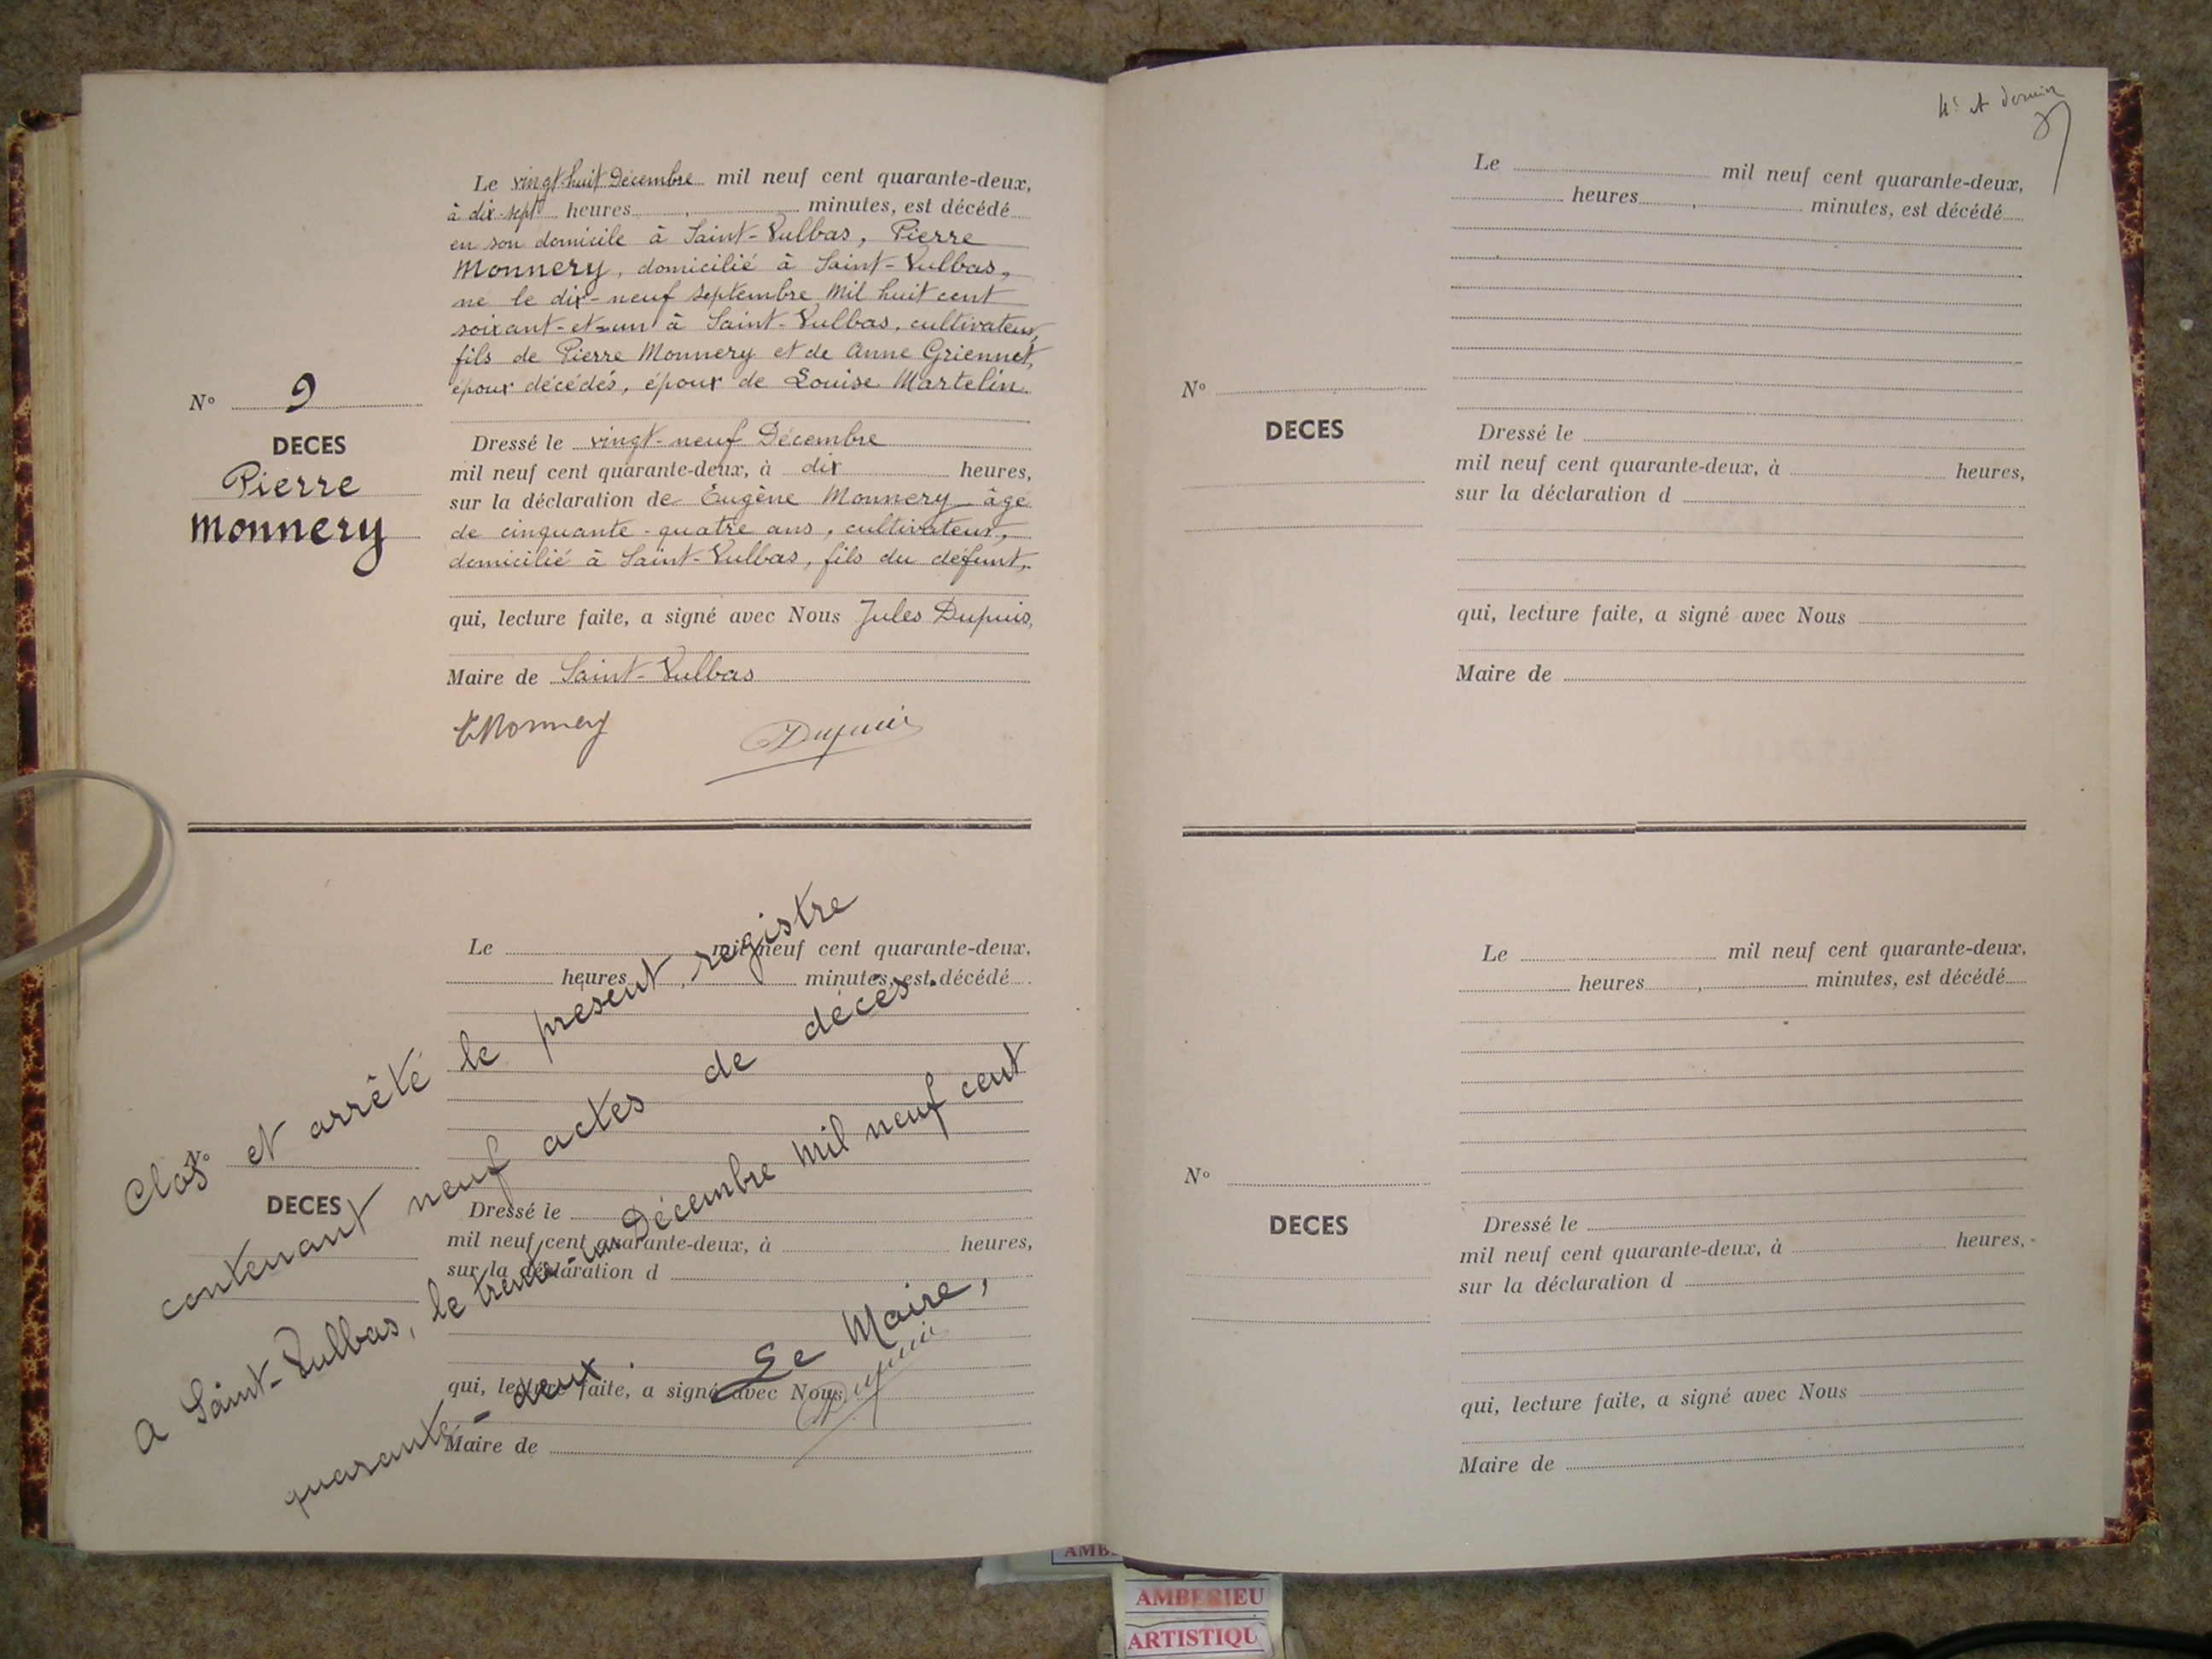 Le vingt-huit Décembre mil neuf cent quarante-deux,
à dix-sept heures, minutes, est décédé
en son domicile à Saint-Vulbas, Pierre
Monnery, domicilié à Saint-Vulbas,
né le dix-neuf septembre mil huit cent
soixant-et-un à Saint-Vulbas, cultivateur,
fils de Pierre Monnery et de Anne Griennet,
époux décédés, époux de Louise Martelin
N° 9
DECES
Pierre
Monnery
Dressé le vingt-neuf Décembre
mil neuf cent quarante-deux, à dix heures,
sur la déclaration de Eugène Monnery âgé
de cinquante-quatre ans, cultivateur,
domicilié à Saint-Vulbas, fils du défunt,
qui, lecture faite, a signé avec Nous Jules Dupuis,
Maire de Saint-Vulbas
EMonnery Dupuis
Le mil neuf cent quarante-deux,
heures, minutes, est décédé
N°
DECES
Dressé le
mil neuf cent quarante-deux, à heures,
sur la déclaration d
qui, lecture faite, a signé avec Nous
Maire de
Clos et arrêté le présent registre
contenant neuf actes de décès.
A Saint-Vulbas, le trente-un Décembre mil neuf cent
quarante-deux.
Le Maire,
Dupuis
4e et dernier
Le mil neuf cent quarante-deux,
heures, minutes, est décédé
N°
DECES
Dressé le
mil neuf cent quarante-deux, à heures,
sur la déclaration d
qui, lecture faite, a signé avec Nous
Maire de
Le mil neuf cent quarante-deux,
heures, minutes, est décédé
N°
DECES
Dressé le
mil neuf cent quarante-deux, à heures,
sur la déclaration d
qui, lecture faite, a signé avec Nous
Maire de
AMB
AMBERIEU
ARTISTIQU